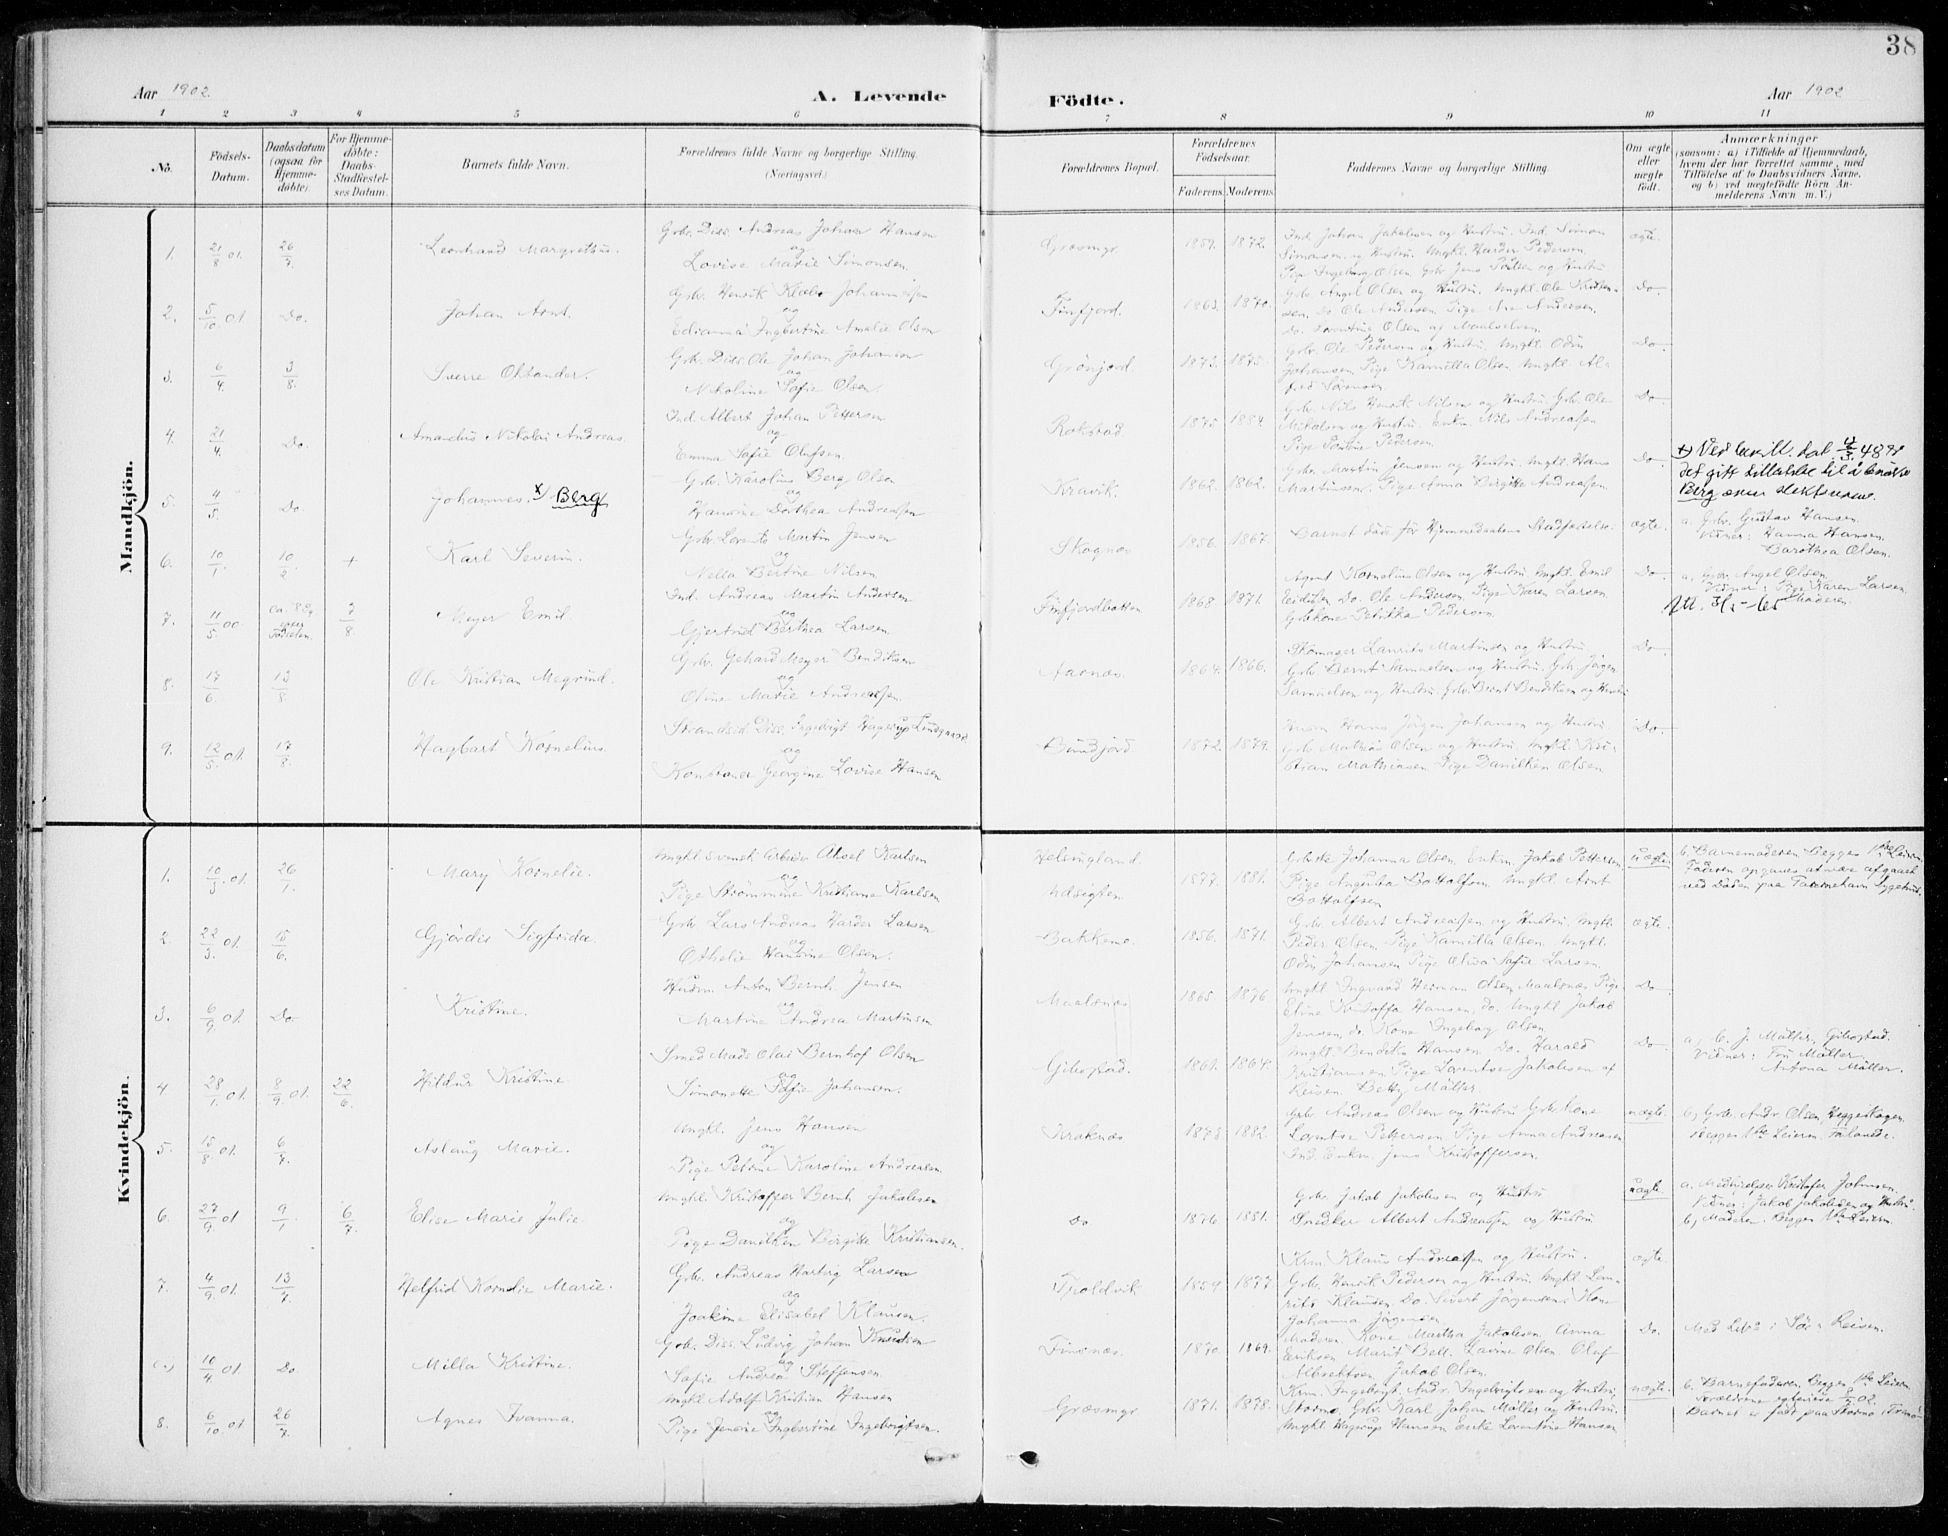 38
Aar 1902. A. Levende Födte. Aar 1902
1 2 3 4 5 6 7 8 9 10 11
No.
Födsels-Datum.
Daabsdatum (ogsaa for Hjemmedöbte)
For Hjemmedöbte: Daabs-Stadfæstelses Datum.
Barnets fulde Navn.
Forældrenes fulde Navne og borgerlige Stilling.
(Næringsvei.)
Forældrenes Bopæl.
Forældrenes Födselsaar.
Faderens. Moderens.
Faddernes Navne og borgerlige Stilling.
Om ægte eller uægte födt.
Anmærkninger
(saasom: a) i Tilfælde af Hjemmedaab,
hvem der har forrettet samme, med
Tilföielse af to Daabsvidners Navne,
og b) ved uægtefödte Börn Anmelderens Navn m. V.)
Mandkjön.
1. 21/8 01. 26/7. Leonhard Margrethus. Grb. Diss. Andreas Johan Hansen
og
Lovise Marie Simonsen. Græsmyr 1859. 1872. Ind. Johan Jakobsen og Hustru. Ind. Simon
Simonsen og Hustru. Ungkl. Harder Pedersen.
Pige Ingeborg Olsen. Grb. Jens Paulsen og Hustru ægte.
2. 5/10 01. Do. Johan Arnt. Grb. Henrik Klæbo Johannessen
og
Edianna Ingbertine Amalie Olsen Finfjord. 1863. 1870. Grb. Angel Olsen og Hustru. Ungkl. Ole Kristen-
sen. Do Ole Andersen. Pige Ane Andersen.
Do. Olsen og Do.
3. 6/4. 3/8. Sverre Oktander. Grb. Diss. Ole Johan Johansen
og
Nikoline Sofie Olsen. Grönjord. 1873. 1875. Grb. Ole Pedersen og Hustru. Ungkl. Odin
Johansen. Pige Kamilla Olsen. Ungkl. Al-
fred Sörensen. Do
4. 21/4. Do. Amandus Nikolai Andreas. Ind. Albert Johan Pettersen
og
Emma Sofie Olufsen. Rokstad. 1875 1884. Grb. Nils Henrik Nilsen og Hustru. Grb. Ole
Mikalsen og Hustru. Enkm. Nils Andreassen
Pige Pedersen. Do
5. 4/5. Do. Johannes. x) Berg Grb. Karolius Berg Olsen
og
Hansine Dorthea Andreassen Kravik. 1862. 1862. Grb. Martin Jensen og Hustru. Ungkl. Hans
Martinsen. Pige Anna Birgitte Andreassen. Do. x) Ved bevill. dat. 48 er
det gitt tillatelse til å benevne
Berg som slektsnavn.
6. 10/1. 10/2. + Karl Severin. Grb. Lorents Martin Jensen
og
Nella Bertine Nilsen Skognes 1856. 1867. Barnet död för Hjemmedaabens Stadfæstelse. ægte. a. Grb. Gustav Hansen.
Vidner: Hanna Hansen.
Dorothea Olsen.
7. 11/5 00. ca 8 Dg efter Födselen. 7/8 Meyer Emil. Ind. Andreas Martin Andersen
og
Gjertrud Berthea Larsen. Finfjordbotten 1868 1871. Agent Kornelius Olsen og Hustru. Ungkl. Emil
Eidisten. Do. Ole Andersen. Pige Karen Larsen.
Gbkone Petrikka Pedersen. Do a, Grb. Angel Olsen
Vidner: Pige Karen Larsen.
Moderen.
8. 17/6. 13/8. Ole Kristian Megrund. Grb. Gehard Meyer Bendiksen
og
Oline Marie Andreassen. Aarnes. 1864. 1866. Skomager Laurits Martinsen og Hustru.
Grb. Bernt Samuelsen og Hustru. Grb. Jörgen
Samuelsen og Hustru. Grb. Bernt Bendiksen og Hustru Do.
9. 12/5. 01. 17/8. Hagbart Kornelius Strandsid. Diss. Ingebrigt Hagerup Lindgaard
og
Konstance Georgine Lovise Hansen 1872. 1879. Husm. Hans Jörgen Johansen og Hustru
Grb. Mathias Olsen og Hustru. Ungkl. Kri-
stian Mathiasen. Pige Danikken Olsen Do.
Kvindekjön.
1. 10/3. 01. 26/1. Mary Kornelie. Ungkl. svensk Arbeider Aksel Karlsen
og
Pige Strömmine Kristiane Karlsen Helsingland.
Udsigten 1877. 1881. Johanna Olsen. Enkm. Jakob Pettersen
Pige Bottolfsen. Ungkl. Arnt
Bottolfsen uægte. b. Barnemoderen. Begges 1ste Leierm.
Faderen opgives at være afgaaet
ved Döden paa Sygehus.
2. 22/3. 01. 15/6. Gjördis Sigfrida. Grb. Lars Andreas Harder Larsen
og
Othelie Hansine Olsen. Bakkemo. 1856. 1871. Grb. Albert Andreassen og Hustru. Ungkl.
Peder Olsen. Pige Kamilla Olsen. Ungkl.
Odin Johansen. Pige Olisa Sofie Larsen. ægte.
3. 6/9. 01. Do Kristine. Husm. Anton Bernh. Jensen
og
Martine Andrea Martinsen Maalsnes 1865. 1876 Ungkl Ingvard Herman Olsen Maalsnes. Pige
Eline Kristoffa Hansen, do. Ungkl Jakob
Jensen, do. Kone Ingeborg Olsen Do
4 28/1. 01. 8/9. 01. 22/6. Hildur Kristine. Smed Mads Olai Bernhof Olsen
og
Simonette Sofie Johansen. Gibostad. 1861. 1864. Ungkl. Bendiks Hansen. Do. Harald
Kristiansen. Pige Lorentse Jakobsen af
Reisen. Betty Möller. Do a, C. J. Möller, Gibostad.
Vidner: Fru Möller.
Antona Möller.
5. 15/8. 01. 6/7. Aslaug Marie. Ungkl. Jens Hansen
og
Pige Petrine Karoline Andreasen. Kraknes 1878. 1882. Grb. Andreas Olsen og Hustru. Grbskone
Lorentse Pettersen. Pige Anna Andreasen
Ind. Enkm. Jens Kristoffersen. uægte. b, Grb. Andr. Olsen, Heggeskogen.
Begges 1ste Leierm.
6. 27/9. 01 9/1. 6/7. Elise Marie Julie. Ungkl. Kristoffer Bernh. Jakobsen
og
Pige Danikken Birgitte Kristiansen. Do 1876. 1881. Grb. Jakob Jakobsen og Hustru
Snedker Albert Andreassen og Hustru uægte. a. Kristofer Johnsen.
Vidner: Jakob Jakobsen og Hustru.
b, Moderen. Begges 1ste Leierm.
7. 4/9. 01. 13/7. Helfrid Kornelie Marie. Grb. Andreas Hartvig Larsen
og
Joakine Elisabet Klausen. Tjoldvik 1854 1877 Krm. Klaus Andreassen og Hustru.
Grb. Henrik Pedersen og Hustru. Ungkl. Lau-
rits Klausen. Do. Sivert Jörgensen. Kone
Johanna Jörgensen ægte.
10/4. 01. Do. Milla Kristine. Grb. Diss. Ludvig Johan Knudsen
og
Sofie Andrea Steffensen. Finsnes. 1870. 1869. Moderen. Kone Martha Jakobsen. Anna
Eriksen. Marit Bell. Lavine Olsen. Oluf
Albrektsen. Jakob Olsen. Do. Med i Sör-Reisen.
8. 6/10 01 26/7. Agnes Ivanna. Ungkl Adolf Kristian Hansen
og
Pige Jensine Ingbertine Ingebrigtsen. Græsmyr 1871. 1878. Krm. Ingebrigt Andr. Ingebrigtsen og Hustru,
Stormo. Grb. Karl Johan Möller og Hustru.
Ungkl. Hagerup Hansen. Enke Lorentine Hansen uægte. b. Barnefaderen. Begges 1ste Leierm.
Forældrene egteviede 02.
Barnet er födt paa Stormo i Tranö